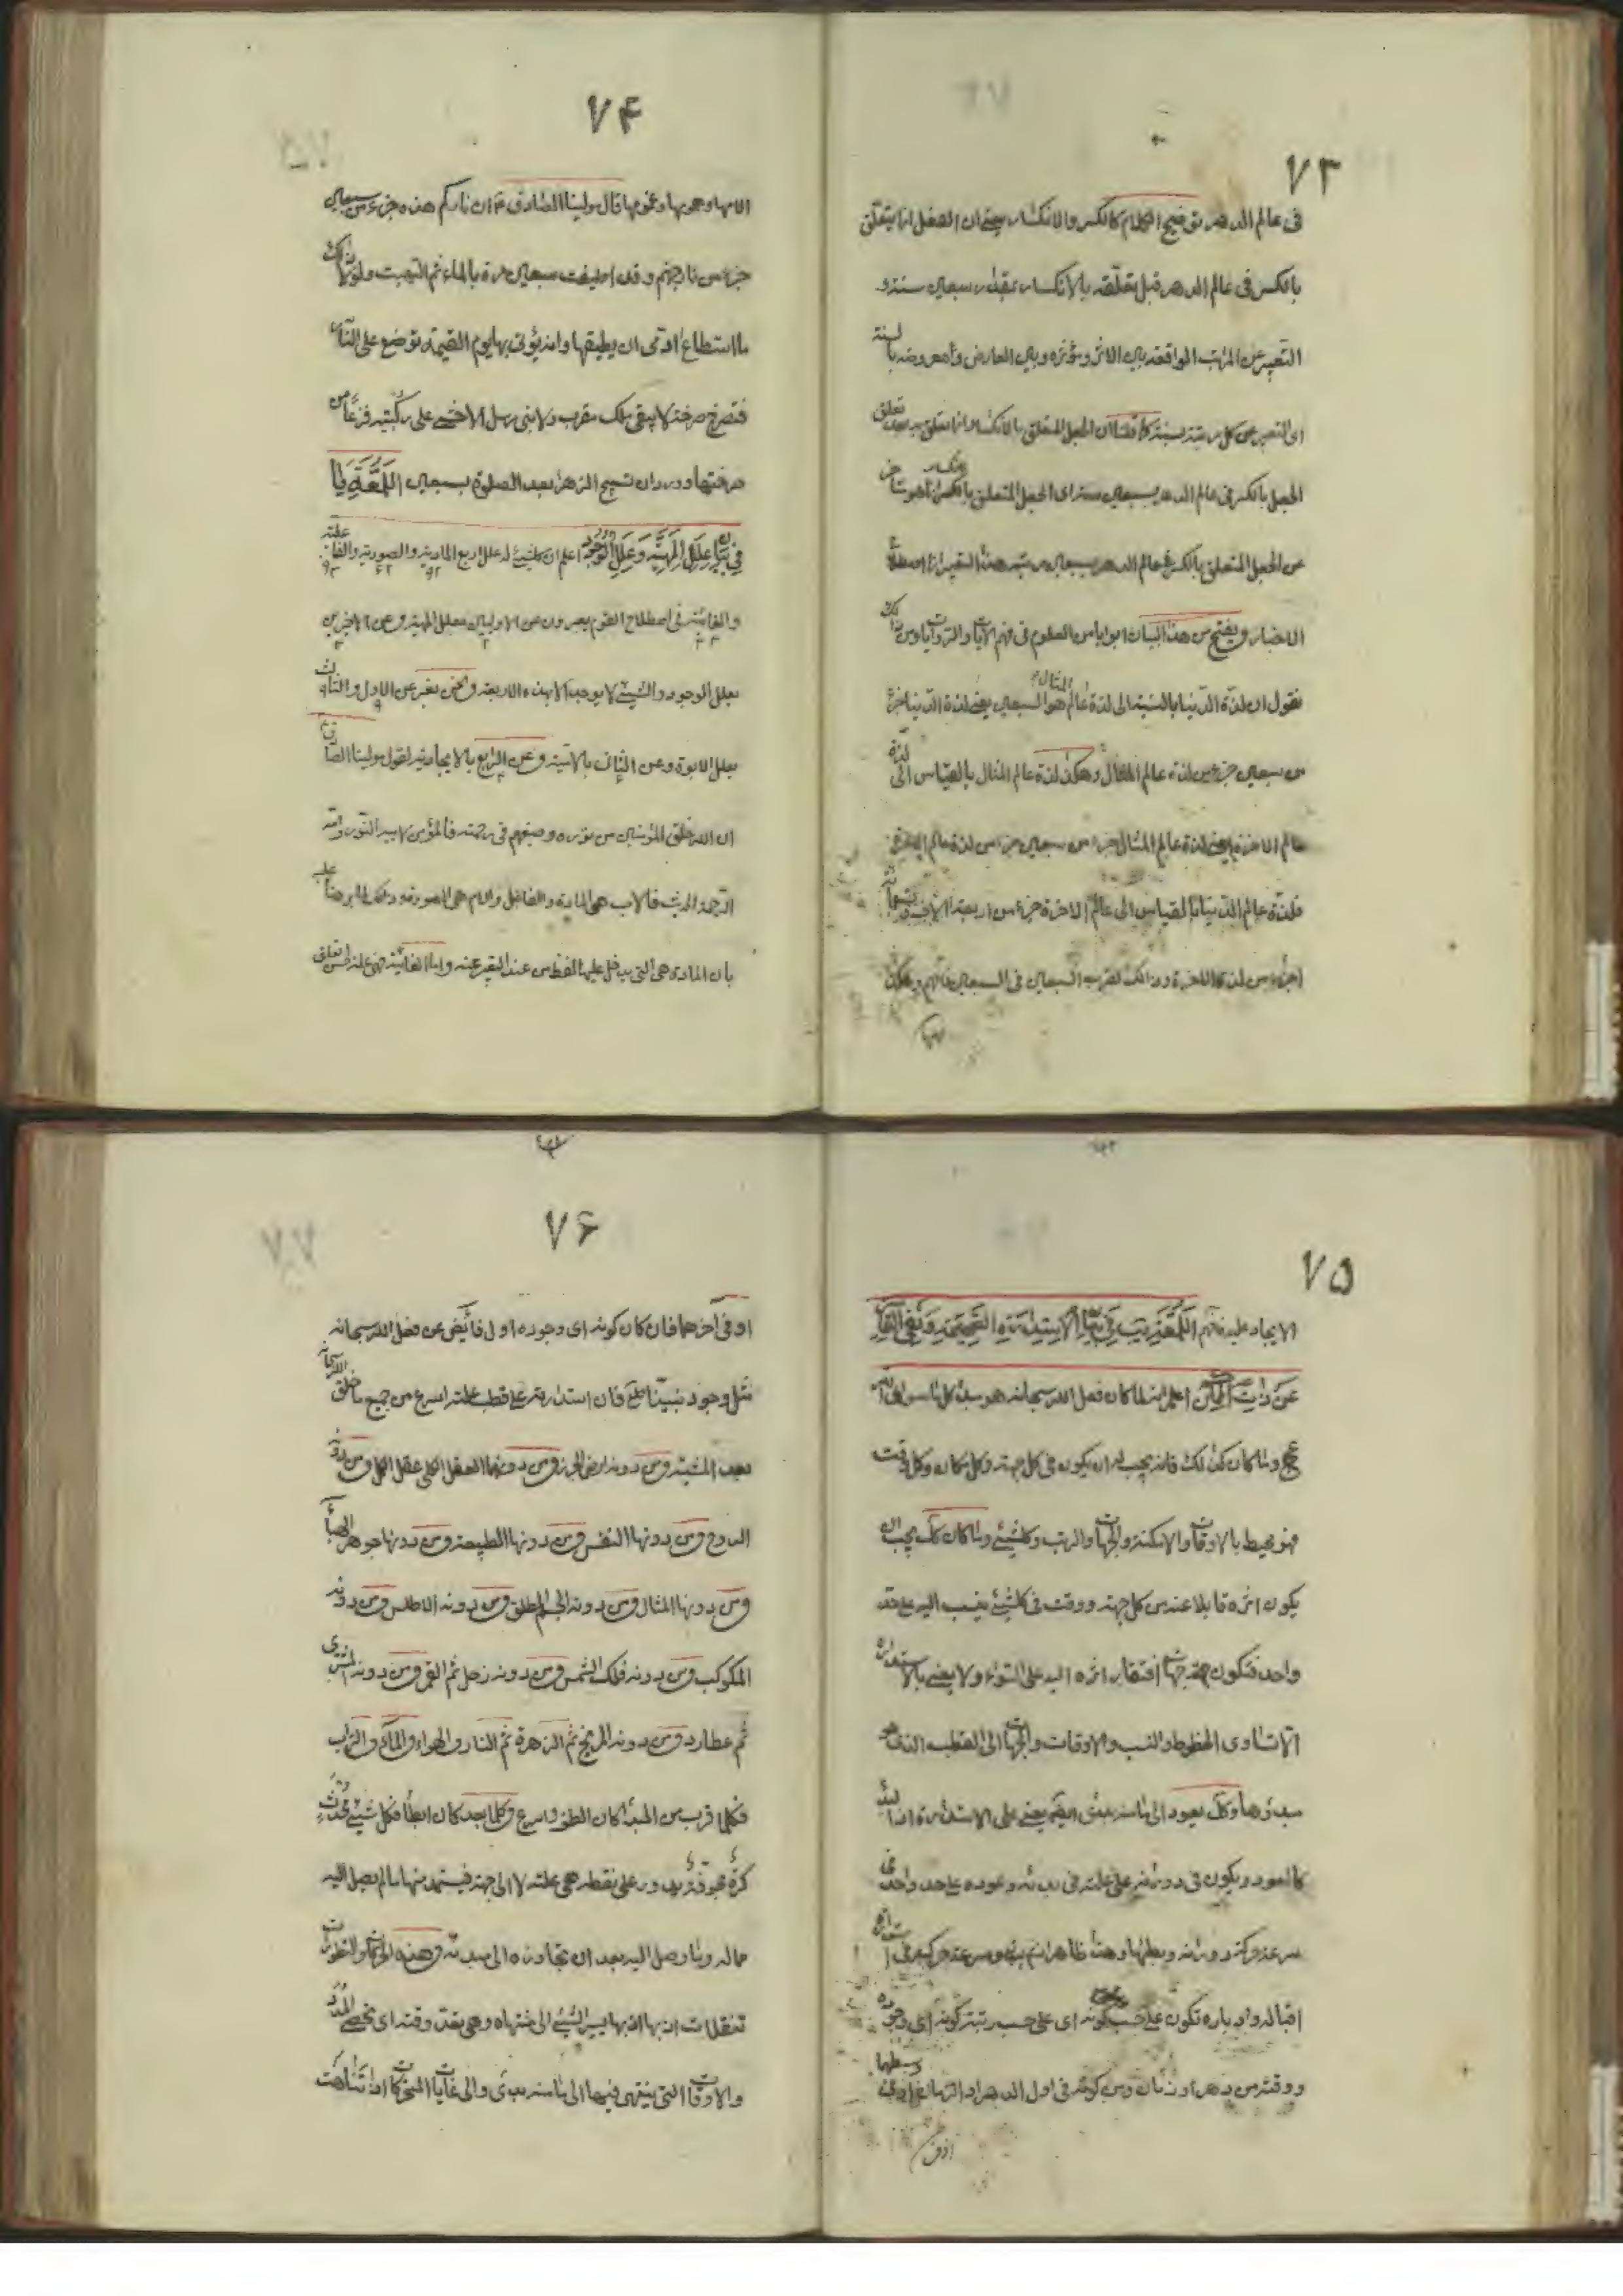 ٧٣
فى عالم الدهر توضيح الكلام كالكسر والانكسار يعنى ان الفعل انما يتعلق
بالكسر فى عالم الدهر قبل تعلقه بالانكسار بمقدار سبعين سنة و
التعبير عن المراتب الواقعة بين الاثر ومؤثره وبين العارض ومعروضه بالسنة
اى التعبير عن كل مرتبة بسنة فلنا ان الجعل المتعلق بالانكسار انما تعلق به بعد تعلق
الجعل بالكسر فى عالم الدهر بسبعين سنة اى الجعل المتعلق بالانكسار انما هو متأخر
عن الجعل المتعلق بالكسر فى عالم الدهر بسبعين مرتبة هذا التعبير انما اصطلاح
الاخبار ويفتح من هذا البيان ابوابا من العلوم فى فهم الآيات والروايات ومن ذلك
نقول ان لذة الدنيا بالنسبة الى لذة عالم المثال هو السبعين يعنى لذة الدنيا جزء
من سبعين جزء من لذة عالم المثال وهكذا لذة عالم المثال بالقياس الى لذة
عالم الاخرة يعنى لذة عالم المثال جزء من سبعين جزء من لذة عالم الاخرة
فلذة عالم الدنيا بالقياس الى عالم الاخرة جزء من اربعة الاف وتسعمائة
اجزاء من لذة الاخرة وذلك لضرب السبعين فى السبعين فافهم وهكذا
٧۴
الامها وهمومها وغمومها قال مولينا الصادق ع ان ناركم هذه جزء من سبعين
جزء من نار جهنم وقد اطفيت سبعين مرة بالماء ثم التهبت ولولا ذلك
ما استطاع ادمى ان يطيقها وانه يؤتى بها يوم القيمة توضع على النار
فتصرخ صرخة لا يبقى ملك مقرب ولا نبى مرسل الا خشى على ركبتيه فزعا من
صرختها وورد ان تسبيح الزهراء بعد الصلوة بسبعين اللمعة يا
فى بيان علل المهية وعلل الوجود اعلم ان كلشيئ له علل اربع المادية والصورية والفاعلية
والغائية فى اصطلاح القوم يعبرون عن الاوليين بعلل المهية وعن الاخيرين
بعلل الوجود والشيئ لا يوجد الا بهذه الاربعة ونحن نعبر عن الاول والثالث
بعلل الابوة وعن الثانى بالامية وعن الرابع بالايجادية لقول مولينا الصادق
ان الله خلق المؤمنين من نوره وصبغهم فى رحمته فالمؤمن لابيه النور وامه
الرحمة الحديث فالاب هى المادة والفاعل والام هى الصورة وذلك لما برهنا عليه
بان المادة هى التى يدخل عليها لفظ من عند التعبير عنه واما الغائية فهى علة لحسن تعلق
٧۵
الايجاد عليه فافهم اللمعة يب فى بيان الاستدارة الصحيحة ونفى القار
عن ذات الجائز اعلم انه لما كان فعل الله سبحانه هو مبدء كل ما سوى الله
عج ولما كان كذلك فانه يجب له ان يكون فى كل جهة وكل مكان وكل وقت
فهو محيط بالاوقات والامكنة والجهات والرتب وكلشيئ ولما كان كك يجب ان
يكون اثره قابلا عنه من كل جهة ووقت فى كلشيئ ينسب اليه على حد
واحد فتكون جهة جهات افتقار اثره اليه على السواء ولا يعنى بالاستدارة
الا تساوى الخطوط والنسب والاوقات والجهات الى القطب الذى هو
مبدؤها وكل يعود الى ما منه بدئ اليه يعنى على الاستدارة اذا البدء
كالعود ويكون فى دورانه على علته فى بدئه وعوده على حد واحد فى
سرعة حركة دورانه وبطئها وهذا ظاهر انتهى وسرعة حركته فى استدارة
اقباله وادباره تكون على حسب كونه اى على حسب رتبة كونه اى وجوده
ووقته من دهر او زمان ومن كونه فى اول الدهر او الزمان او فى وسطهما
اوفى
٧۶
او فى آخرهما فان كان كونه اى وجوده اول فائض عن فعل الله سبحانه
مثل وجود نبينا ص فان استدارته على قطب علته اسرع من جميع ما خلق الله سبحانه
بعد المشية ومن دونه ارض الجرز ومن دونها العقل الكلى عقل الكل ومن دونه
الروح ومن دونها النفس ومن دونها الطبيعة ومن دونها جوهر الهباء
ومن دونها المثال ومن دونه الجسم المطلق ومن دونه الاطلس ومن دونه
المكوكب ومن دونه فلك الشمس ومن دونه زحل ثم القمر ومن دونه المشترى
ثم عطارد ومن دونه المريخ ثم الزهرة ثم النار والهواء والماء والتراب
فكلما قرب من المبدء كان الطف واسرع وكلما بعد كان ابطأ فكل شيئ محدث
كرة مجوفة يدور على نقطة هى علته لا الى جهة فيستمد منها ما لم يصل اليه
مما له وما وصل اليه بعد ان تجاوزه الى مبدئه وهذه الحركات والتطورات
تنقلات ادبها الله بها يسير الشيئ الى منتهاه وهى بقدر وقته اى بحصص المدد
والاوقات التى ينتهى فيها الى ما منه بدئ والى غايات المتحركات اذا تناهت